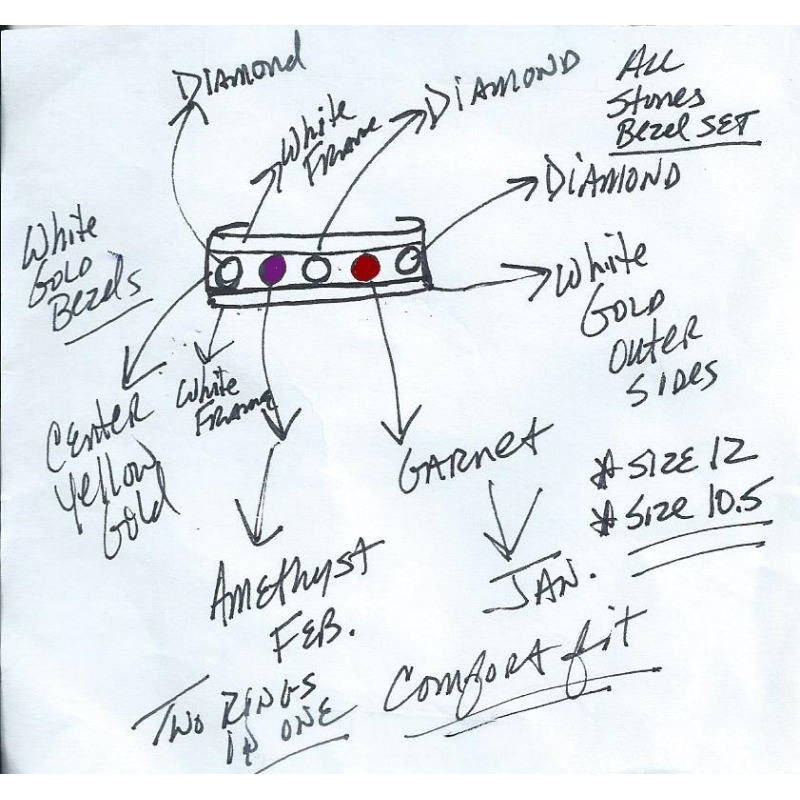 DIAMOND
White
FRAME
DIAMOND
All
Stones
Bezel SET
DIAMOND
White
GOLD
Bezels
White
GOLD
OUTER
SIDES
Center
Yellow
Gold
White
FRAME
GARNET
# SIZE 12
# SIZE 10.5
AMEthyst
FEB.
JAN.
TWO RINGS
IN ONE
Comfort fit